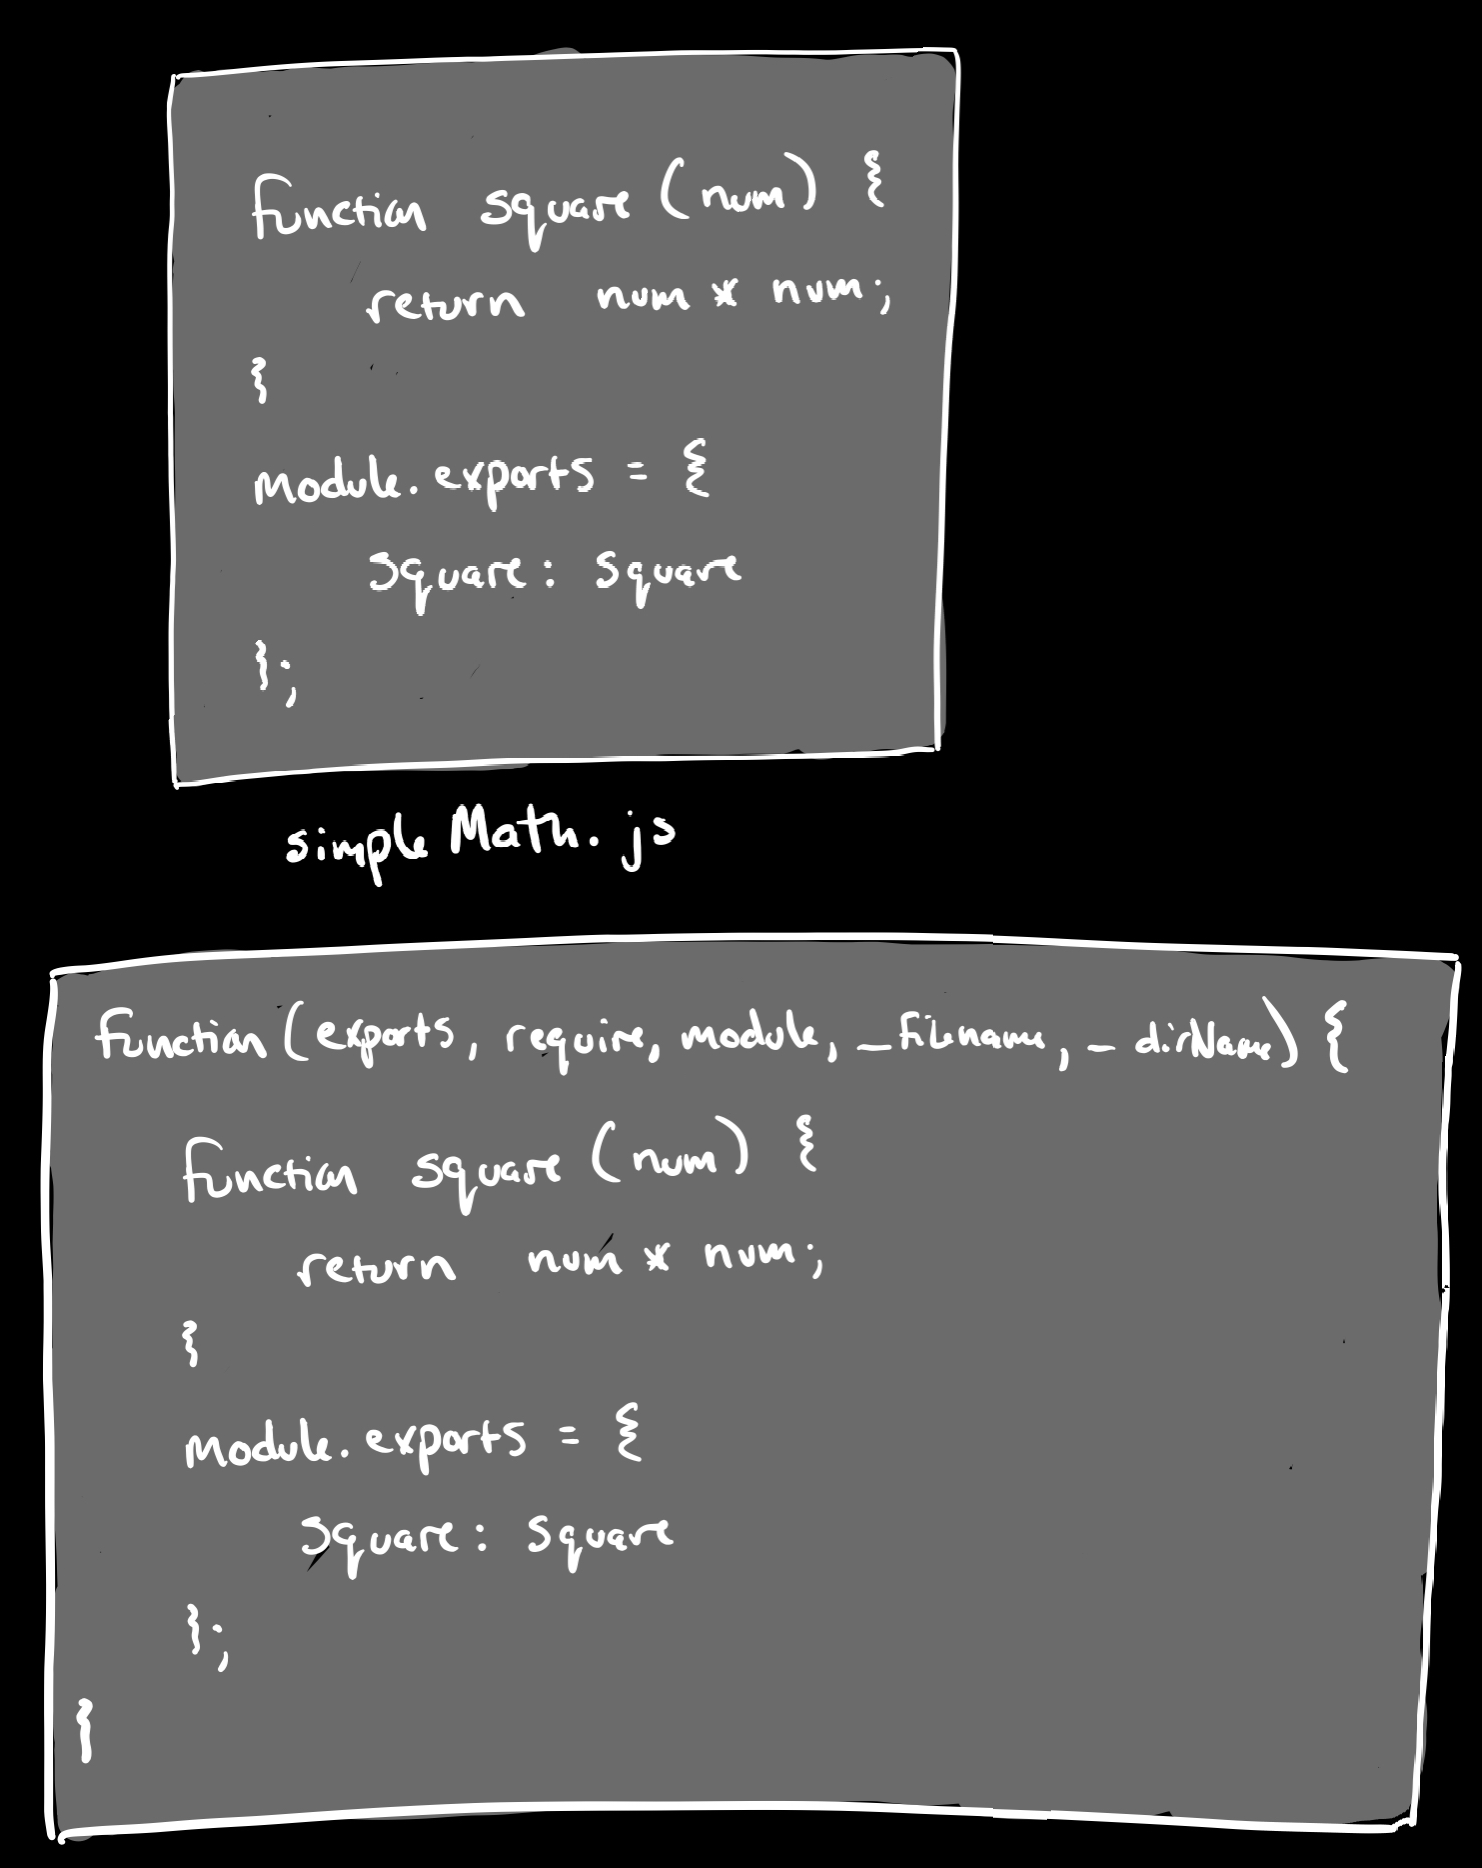 function square (num) {
return num * num;
}
module.exports = {
square: square
};
simpleMath.js
function(exports, require, module, _filename, _dirName) {
function square (num) {
return num * num;
}
module.exports = {
square: square
};
}